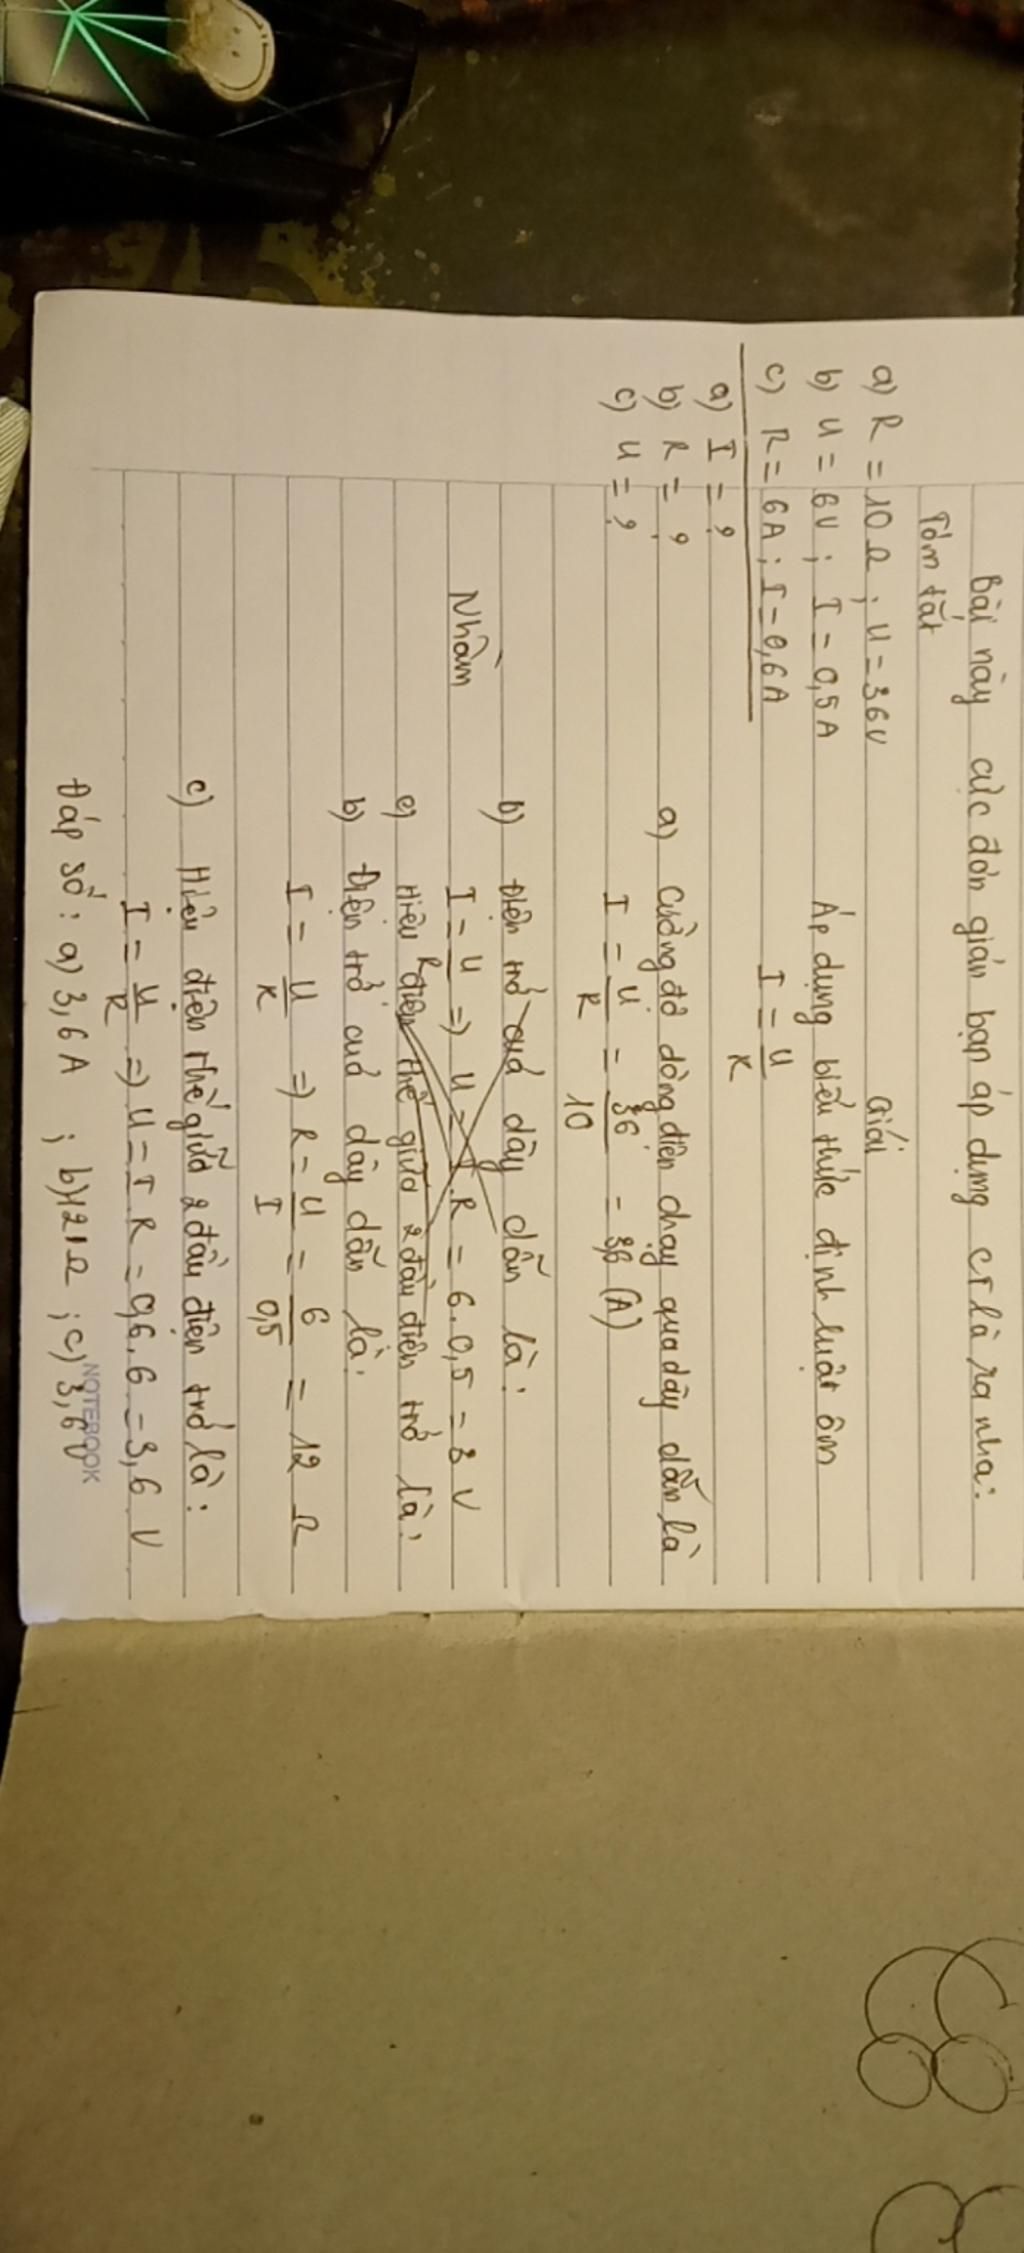 Bài này cực đơn giản bạn áp dụng CT là ra nha:
Tóm tắt
a) R = 10 Ω ; U = 36V
b) U = 6V ; I = 0,5A
c) R = 6A ; I = 0,6A
a) I = ?
b) R = ?
c) U = ?
Giải
Áp dụng biểu thức định luật ôm
I = U/R
a) Cường độ dòng điện chạy qua dây dẫn là
I = U/R = 36/10 = 3,6 (A)
b) Điện trở cuả dây dẫn là:
Nhầm
I = U/R => U = I.R = 6.0,5 = 3 V
c) Hiệu điện thế giữa 2 đầu điện trở là:
b) Điện trở cuả dây dẫn là:
I = U/R => R = U/I = 6/0,5 = 12 Ω
c) Hiệu điện thế giữa 2 đầu điện trở là:
I = U/R => U = I R = 0,6.6 = 3,6 V
Đáp số: a) 3,6A ; b) 12 Ω ; c) 3,6V
NOTEBOOK